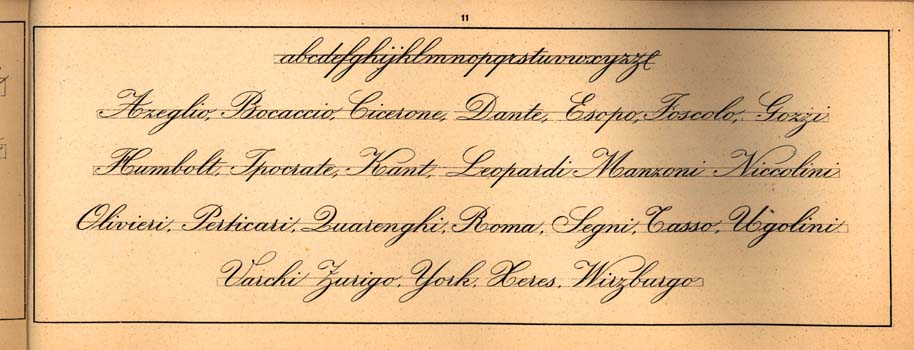 11
abcdefghijklmnopqrstuvwxyzzl
Azeglio, Bocaccio, Cicerone, Dante, Esopo, Foscolo, Gozzi
Humbolt, Ipocrate, Kant, Leopardi Manzoni Niccolini
Olivieri, Perticari, Quarenghi, Roma, Segni, Tasso, Ugolini
Varchi Zurigo, York, Xeres, Wirzburgo